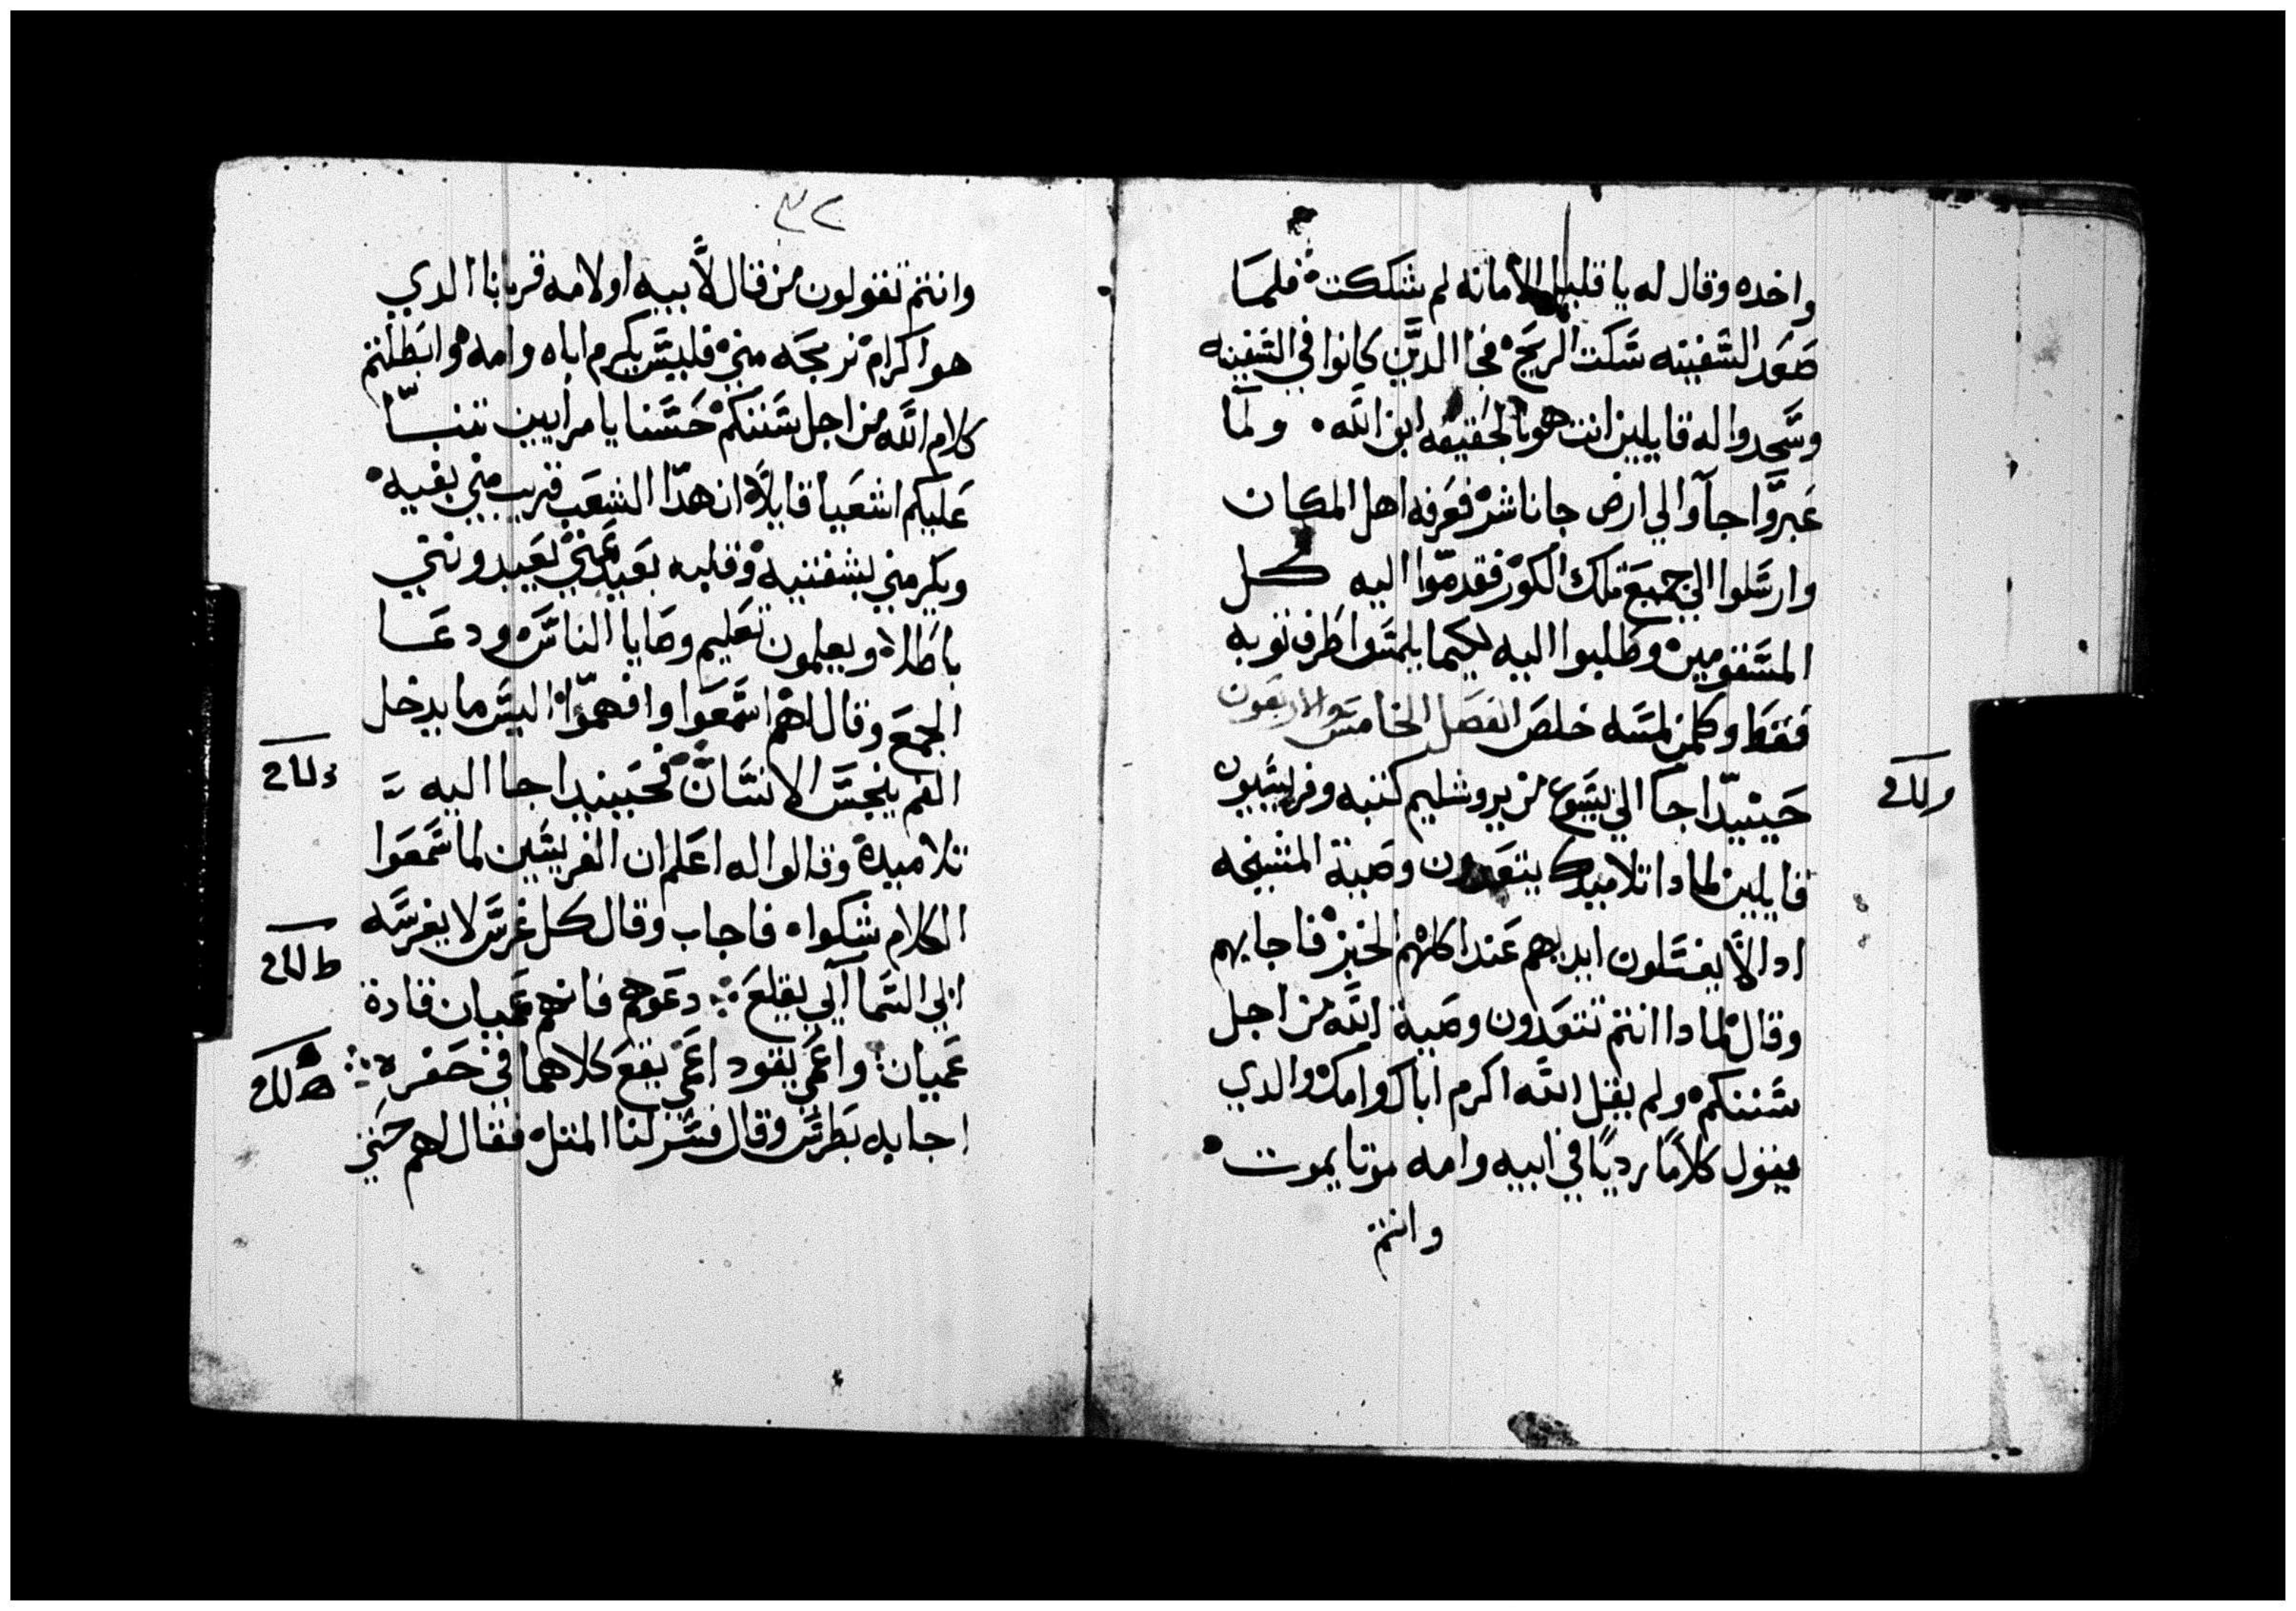 واخده وقال له يا قليل الامانه لم شككت فلما
صعد السفينه سكنت الريح فجا الدين كانوا في السفينه
وسجدوا له قايلين انت هو بالحقيقه ابن الله ولما
عبروا جاوا الي ارض جاناشر فعرفه اهل المكان
وارسلوا الي جميع تلك الكور فقدموا اليه كل
المسقومين وطلبوا اليه ليكيما يلمسوا طرف توبه
فقط وكلمن لمسه خلص الفصل الخامس والاربعون
حينيدا جا الي يسوع من يروشليم كتبه وفريسيون
قايلين لمادا تلاميدك يتعدون وصية المشيخه
ادا لا يغسلون ايديهم عند اكلهم الخبز فاجابهم
وقال لمادا انتم تتعدون وصية الله من اجل
سننكم ولم يقل الله اكرم اباك وامك والدي
فيقول كلاما رديا في ابيه وامه موتا يموت
وانتم
٣٢
وانتم تقولون من قال لابيه او لامه قربانا الدي
هو اكرام تربجه مني فليس يكرم اباه وامه وابطلتم
كلام الله من اجل سننكم حسنا يا مراييين تنبا
عليكم اشعيا قايلا ان هدا الشعب قريب مني بفيه
ويكرمني بشفتيه وقلبه بعيد عني يعيدونني
باطلا ويعلمون تعليم وصايا الناس ودعا
الجمع وقال لهم اسمعوا وافهموا اليس ما يدخل
الفم ينجس الانسان فحينيدا جا اليه
تلاميده وقالوا له اعلم ان الفريسيين لما سمعوا
الكلام شكوا فاجاب وقال كل غرس لا يغرسه
ابي السماايي يقلع دعوهم فانهم عميان قادة
عميان واعمي يقود اعمي يقع كلاهما في حفره
اجابه بطرس وقال فسر لنا المتل فقال لهم حتي